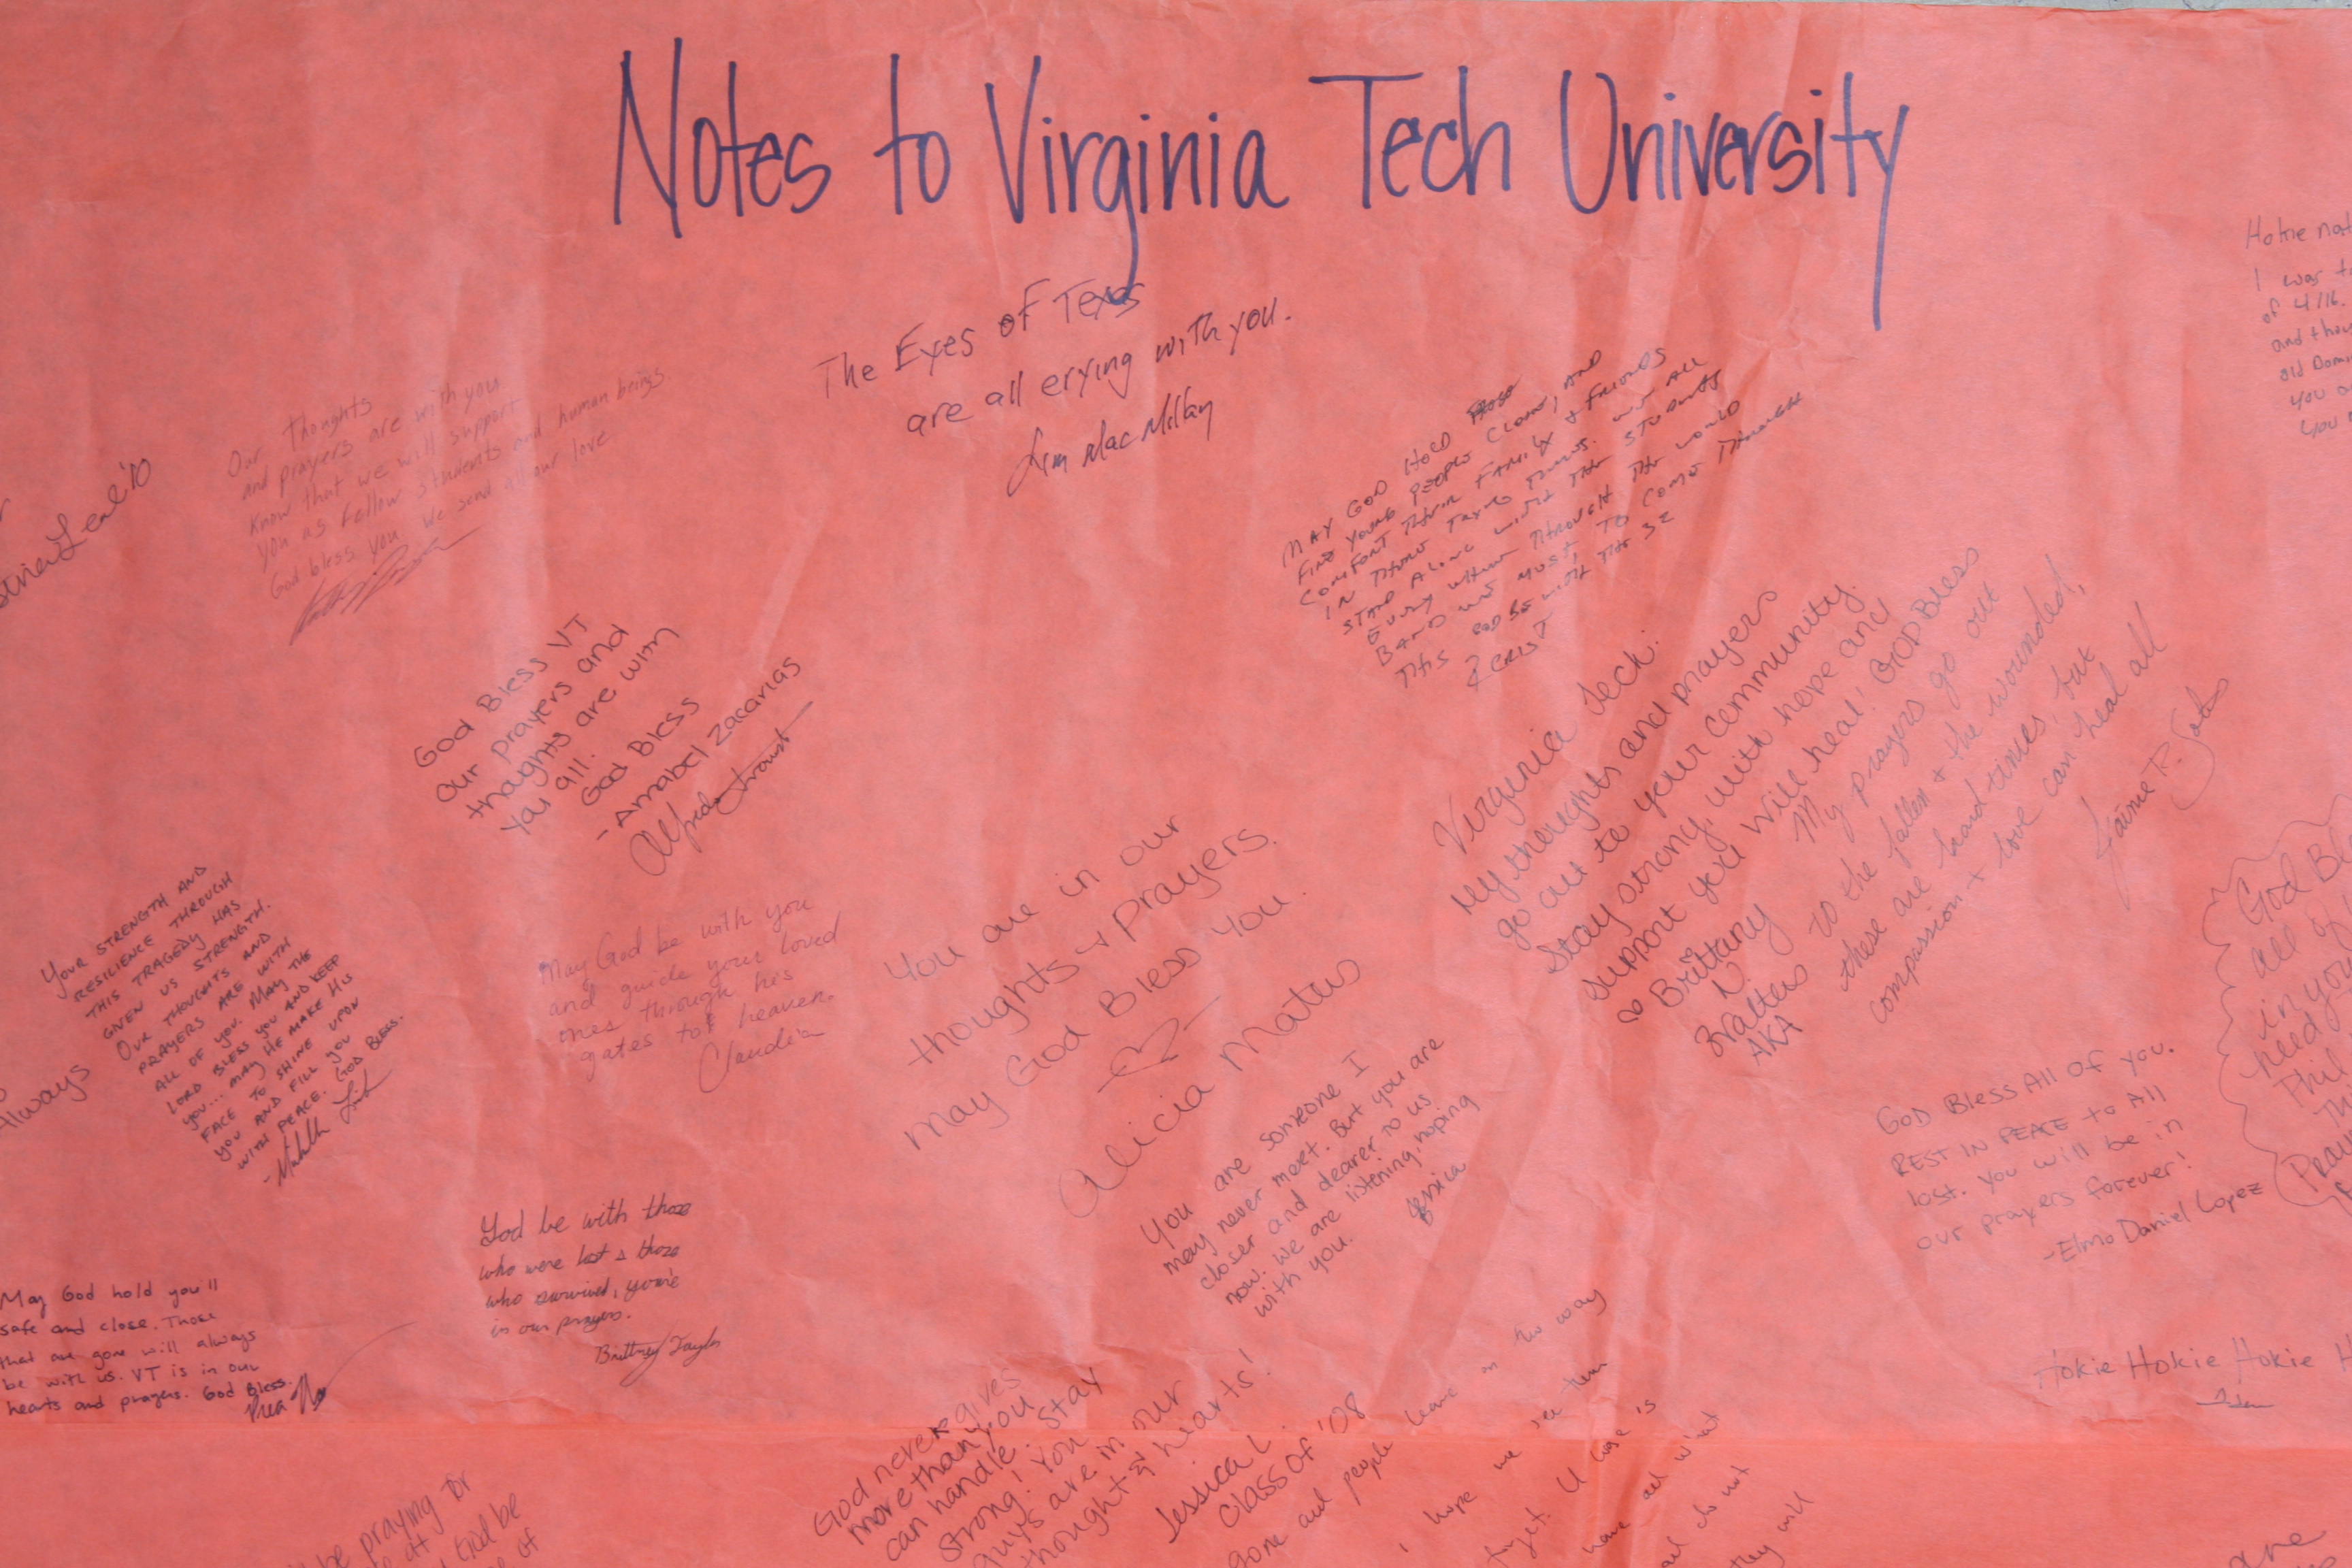 Notes to Virginia Tech University
The Eyes of Texas
are all crying with you.
Our thoughts
and prayers are with you
Know that we will support
you as fellow students and human beings
God bless you we send all our love
Leal '10
MAY GOD HOLD THOSE
FINE YOUNG PEOPLE CLOSE, AND
COMFORT THEIR FAMILY & FRIENDS
IN THESE TRYING TIMES. WE ALL
STAND ALONG WITH THE STUDENTS
EVERY WHERE THROUGHT THE WORLD
BAND WE MUST TO COME THROUGH
THIS GOD BE WITH THE 32
Hokie nat
I was
of 4/16.
and thou
old Dom
you a
you
God Bless VT
Our prayers and
thoughts are with
you all.
God Bless
- Annabel Zacarias
Virginia Tech:
My thoughts and prayers
go out to your community.
Stay strong, with hope and
support you will heal! GOD Bless
∞ Brittany
N.
Walters
AKA
My prayers go out
to the fallen + the wounded,
these are hard times, but
compassion + love can heal all
Jaime R. Soto
YOUR STRENGTH AND
RESILIENCE THROUGH
THIS TRAGEDY HAS
GIVEN US STRENGTH.
OUR THOUGHTS AND
PRAYERS ARE WITH
ALL OF YOU. MAY THE
LORD BLESS YOU AND KEEP
YOU... MAY HE MAKE HIS
FACE TO SHINE UPON
YOU AND FILL YOU
WITH PEACE. GOD BLESS.
Always
May God be with you
and guide your loved
ones through his
gates to heaven.
Claudia
You are in our
thoughts + prayers.
May God Bless You.
Alicia Mateus
You are someone I
may never meet. But you are
closer and dearer to us
now. We are listening, hoping
with you.
Jessica
God Bless All of you.
REST IN PEACE to All
lost. You will be in
our prayers forever!
-Elmo Daniel Lopez
God Ble
all of
in you
need
Phil
Th
Pray
God be with those
who were lost & those
who survived, you're
in our prayers.
Brittney Taylor
May God hold you'll
safe and close. Those
that are gone will always
be with us. VT is in our
hearts and prayers. God Bless.
Hokie Hokie Hokie H
God never gives
more than you
can handle. Stay
strong! You
guys are in our
thoughts & hearts!
Jessica L.
Class of '08
gone and people leave on the way
I hope we see them
forget. U have is
have and what
and do not
they will
be praying for
God be
of